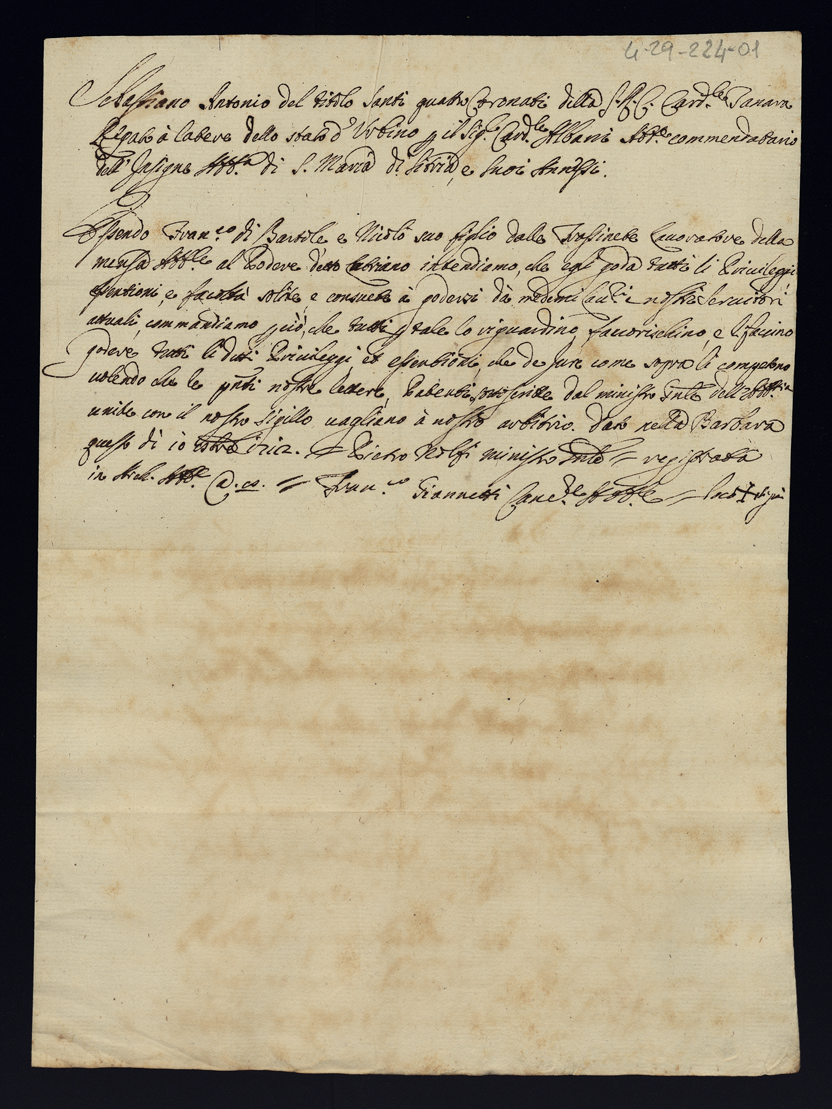 4-29-224-01
Sebastiano Antonio del titolo Santi quattro Coronati della S. R. C. Card.le Tanara
Legato à latere dello stato d'Urbino p il Sig.r Card.le Albani Abb.e commendatario
dell'Insigne Abb.a di S. Maria di Sitria, e suoi Annessi.
Essendo Fran.co di Bartolo e Nicolò suo figlio dalle Frassinete Lavoratore della
mensa Abb.le al Podere detto intendiamo, che egli goda tutti li Privileggi
essentioni, e facoltà solite e consuete à godersi dà nostri servitori
attuali, commandiamo p ciò, che tutti p tale lo riguardino, favorischino, e lo faccino
godere tutti li detti Privileggi, et essentioni, che de jure come sopra li competono
volendo che le pnti nostre lettere, sottoscritte dal ministro Gnle dell'Abb.a
unite con il nostro sigillo vagliano à nostro arbitrio. Dato nella Barbara
questo dì 10 1712. = Pietro Nolfi ministro Gnle = registrata
in Abb. = Fran.co Giannetti Canc.re Abb.le = loco + sigilli